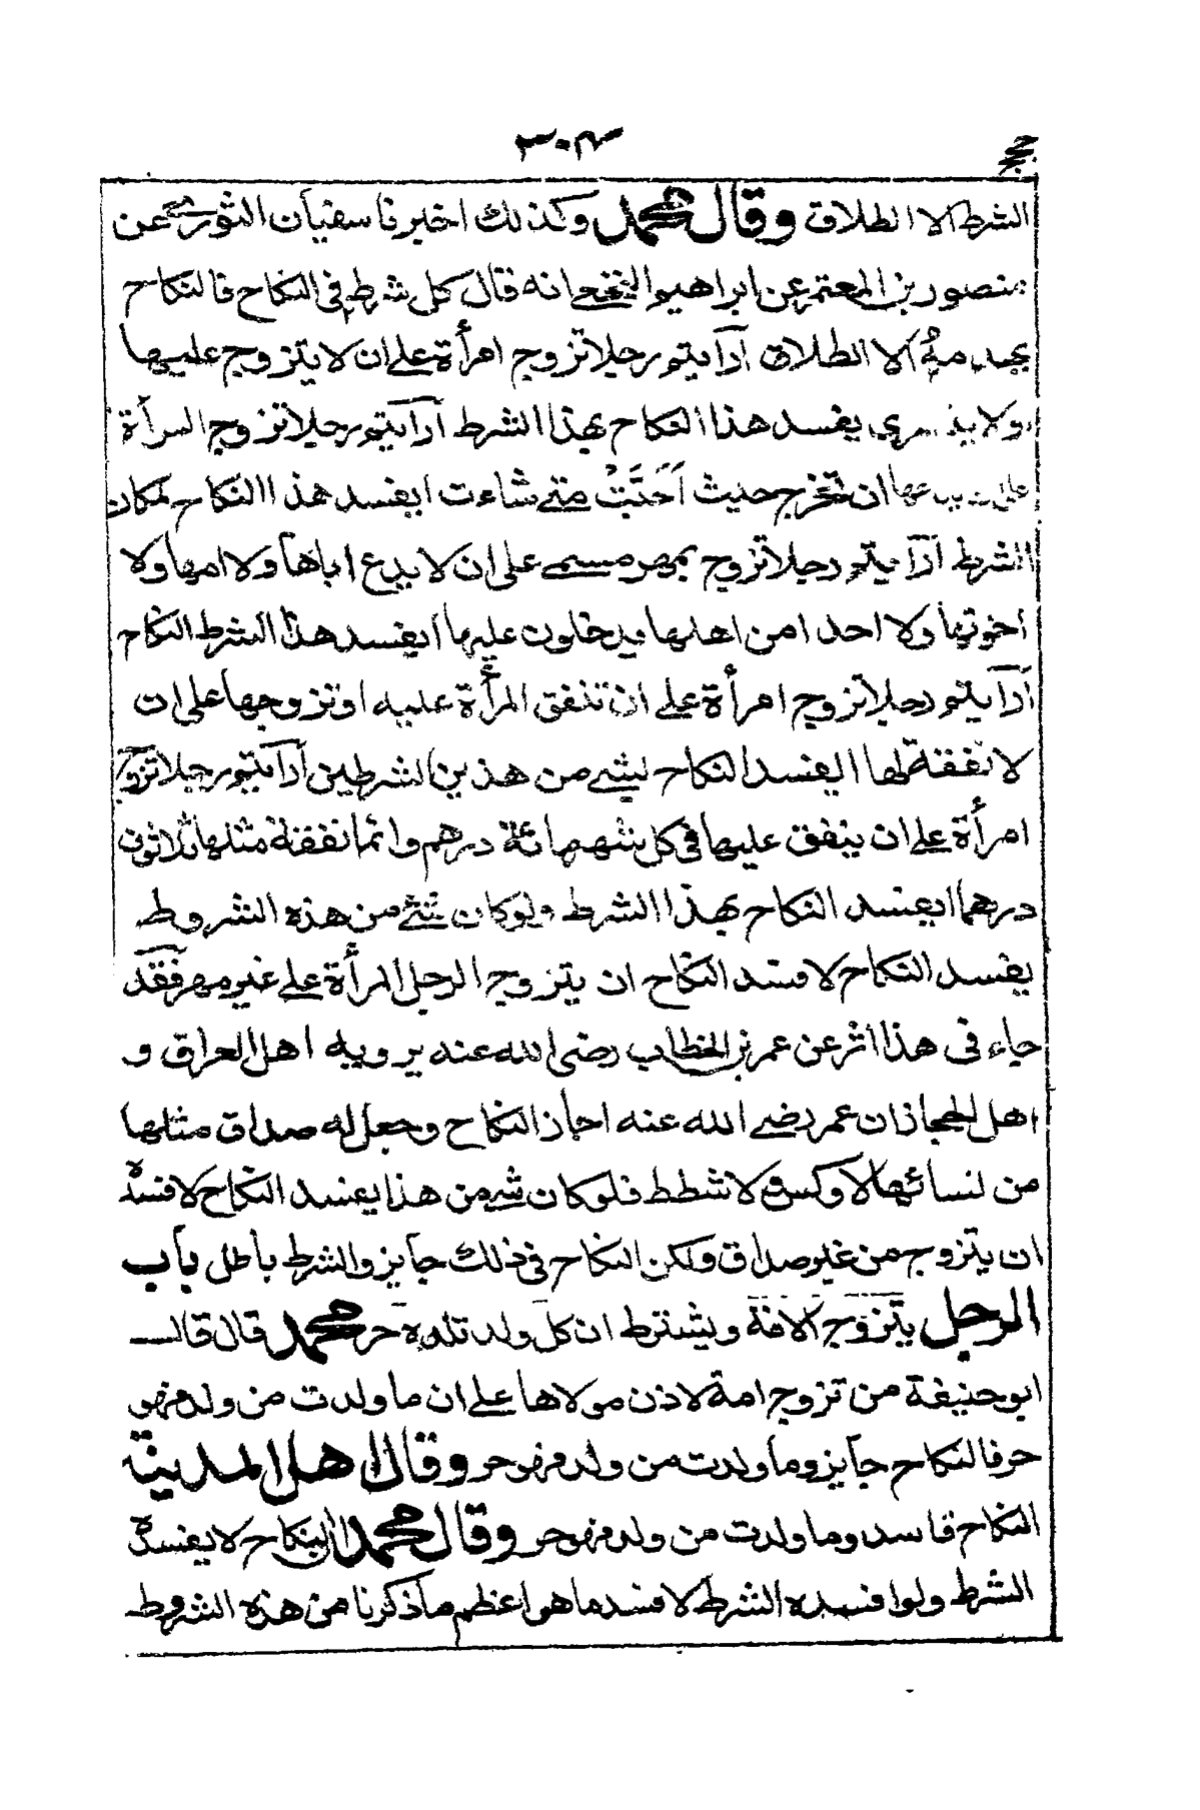 ٣٠٣
الشرط الا الطلاق وقال محمد وكذلك اخبرنا سفيان الثوري عن
منصور بن المعتمر عن ابراهيم النخعي انه قال كل شرط في النكاح فالنكاح
يهدمه الا الطلاق أرأيتم رجلا تزوج امرأة على ان لا يتزوج عليها
ولا يفسد هذا النكاح بهذا الشرط أرأيتم رجلا تزوج المرأة
على ان تخرج حيث أحبت متى شاءت ايفسد هذا النكاح لمكان
الشرط أرأيتم رجلا تزوج بمهر مسمى على ان لا يدع اباها ولا امها ولا
اخوتها ولا احدا من اهلها يدخلون عليها ايفسد هذا الشرط النكاح
أرأيتم رجلا تزوج امرأة على ان تنفق المرأة عليه او تزوجها على ان
لا نفقة لها ايفسد النكاح لشئ من هذين الشرطين أرأيتم رجلا تزوج
امرأة على ان ينفق عليها في كل شهر مائة درهم وانما نفقة مثلها ثلاثون
درهما ايفسد النكاح بهذا الشرط ولو كان شئ من هذه الشروط
يفسد النكاح لا فسد النكاح ان يتزوج الرجل المرأة على غير مهر فقد
جاء في هذا اثر عن عمر بن الخطاب رضى الله عنه يرويه اهل العراق و
اهل الحجاز ان عمر رضى الله عنه اجاز النكاح وجعل له صداق مثلها
من نسائها لا وكس ولا شطط فلو كان شئ من هذا يفسد النكاح لا فسده
ان يتزوج من غير صداق ولكن النكاح في ذلك جايز والشرط باطل باب
الرجل يتزوج الامة ويشترط ان كل ولد تلده حر محمد قال قال
ابو حنيفة من تزوج امة لاذن مولاها على ان ما ولدت من ولد فهو
حر فالنكاح جايز وما ولدت من ولد فهو حر وقال اهل المدينة
النكاح فاسد وما ولدت من ولد فهو حر وقال محمد ان النكاح لا يفسده
الشرط ولو افسده الشرط لا فسد ما هو اعظم ما ذكرنا من هذه الشروط